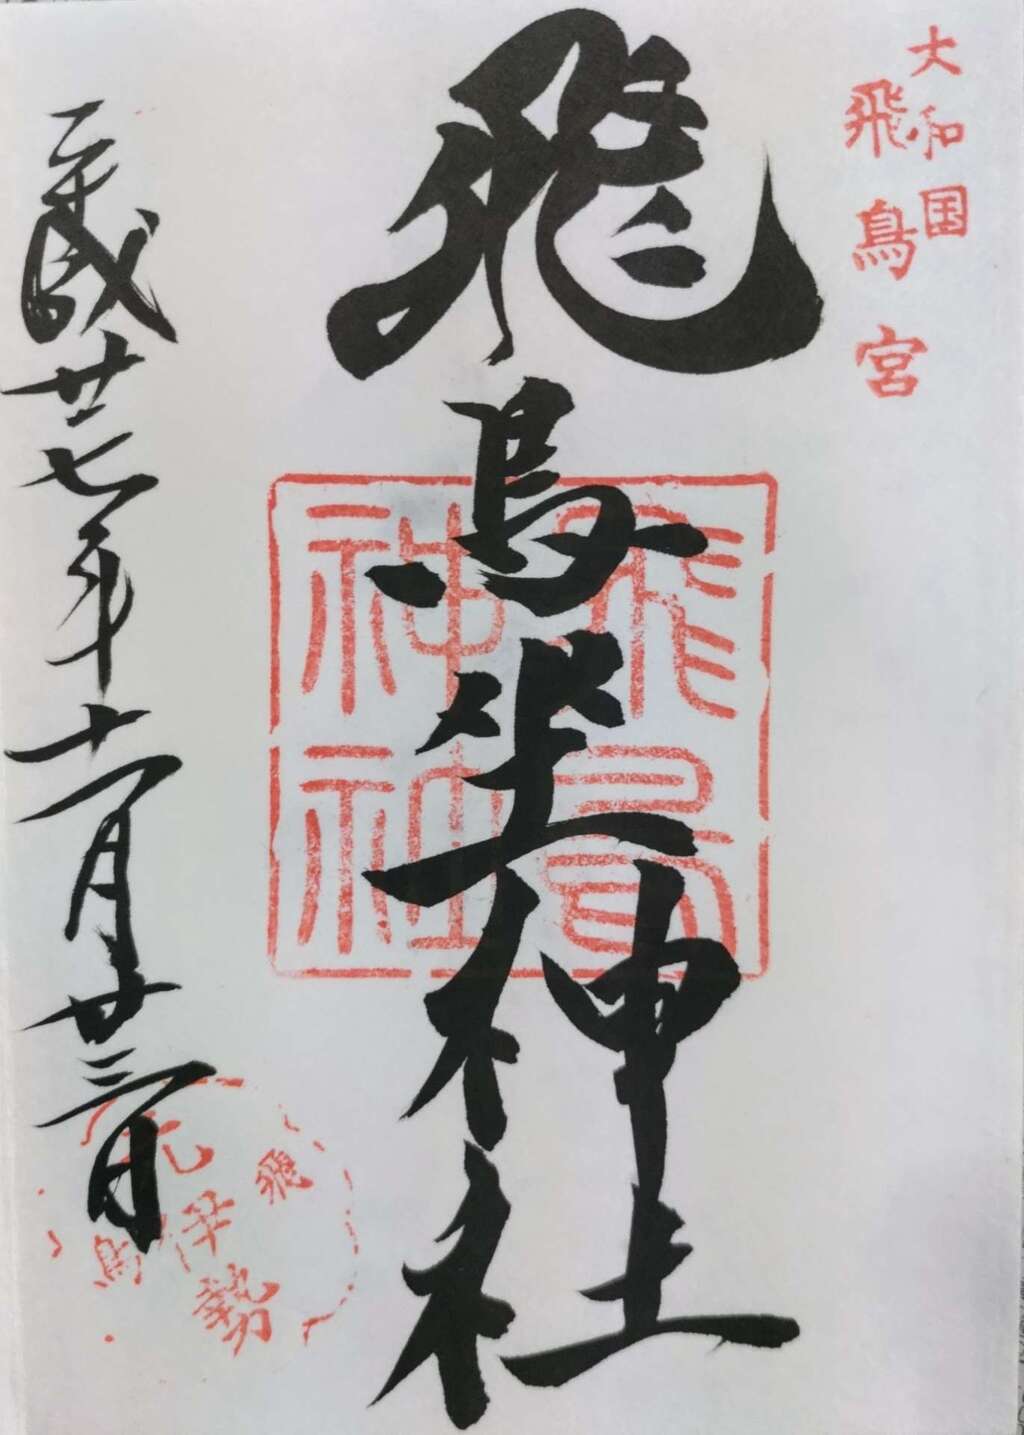 大和国
飛鳥宮
飛鳥坐神社
飛鳥
神社
平成廿七年十一月廿三日
元伊勢
飛鳥